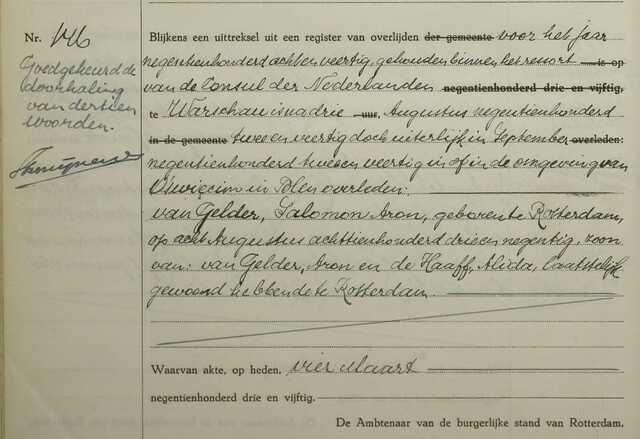 Nr. 146
Goedgekeurd de
doorhaling
van dertien
woorden.
Blijkens een uittreksel uit een register van overlijden der gemeente voor het jaar
negentienhonderd acht en veertig, gehouden binnen het ressort is op
van de Consul der Nederlanden negentienhonderd drie en vijftig,
te Warschau is na drie uur, Augustus negentienhonderd
in de gemeente twee en veertig doch uiterlijk in September overleden:
negentienhonderd twee en veertig in of in de omgeving van
Oswiecim in Polen overleden:
van Gelder, Salomon Aron, geboren te Rotterdam,
op acht Augustus achttienhonderd drie en negentig, zoon
van: van Gelder, Aron en de Haaff, Alida, laatstelijk
gewoond hebbende te Rotterdam.
Waarvan akte, op heden, vier Maart
negentienhonderd drie en vijftig.
De Ambtenaar van de burgerlijke stand van Rotterdam.